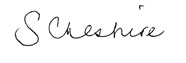 S Cheshire